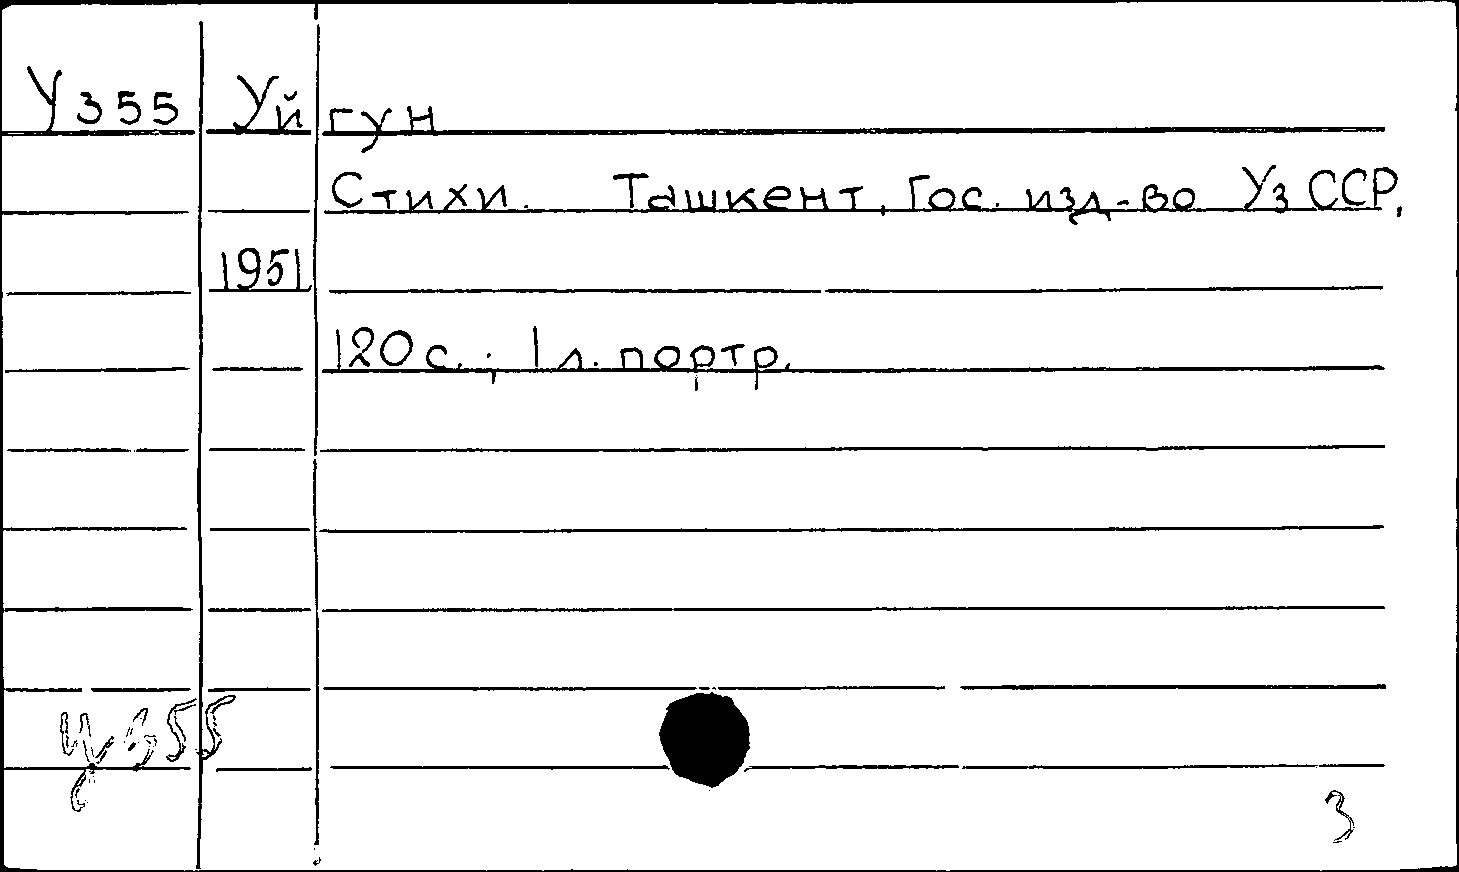 У355 Уйгун
Стихи. Ташкент, Гос. изд-во УзССР,
1951
120 с.; 1 л. портр.
3